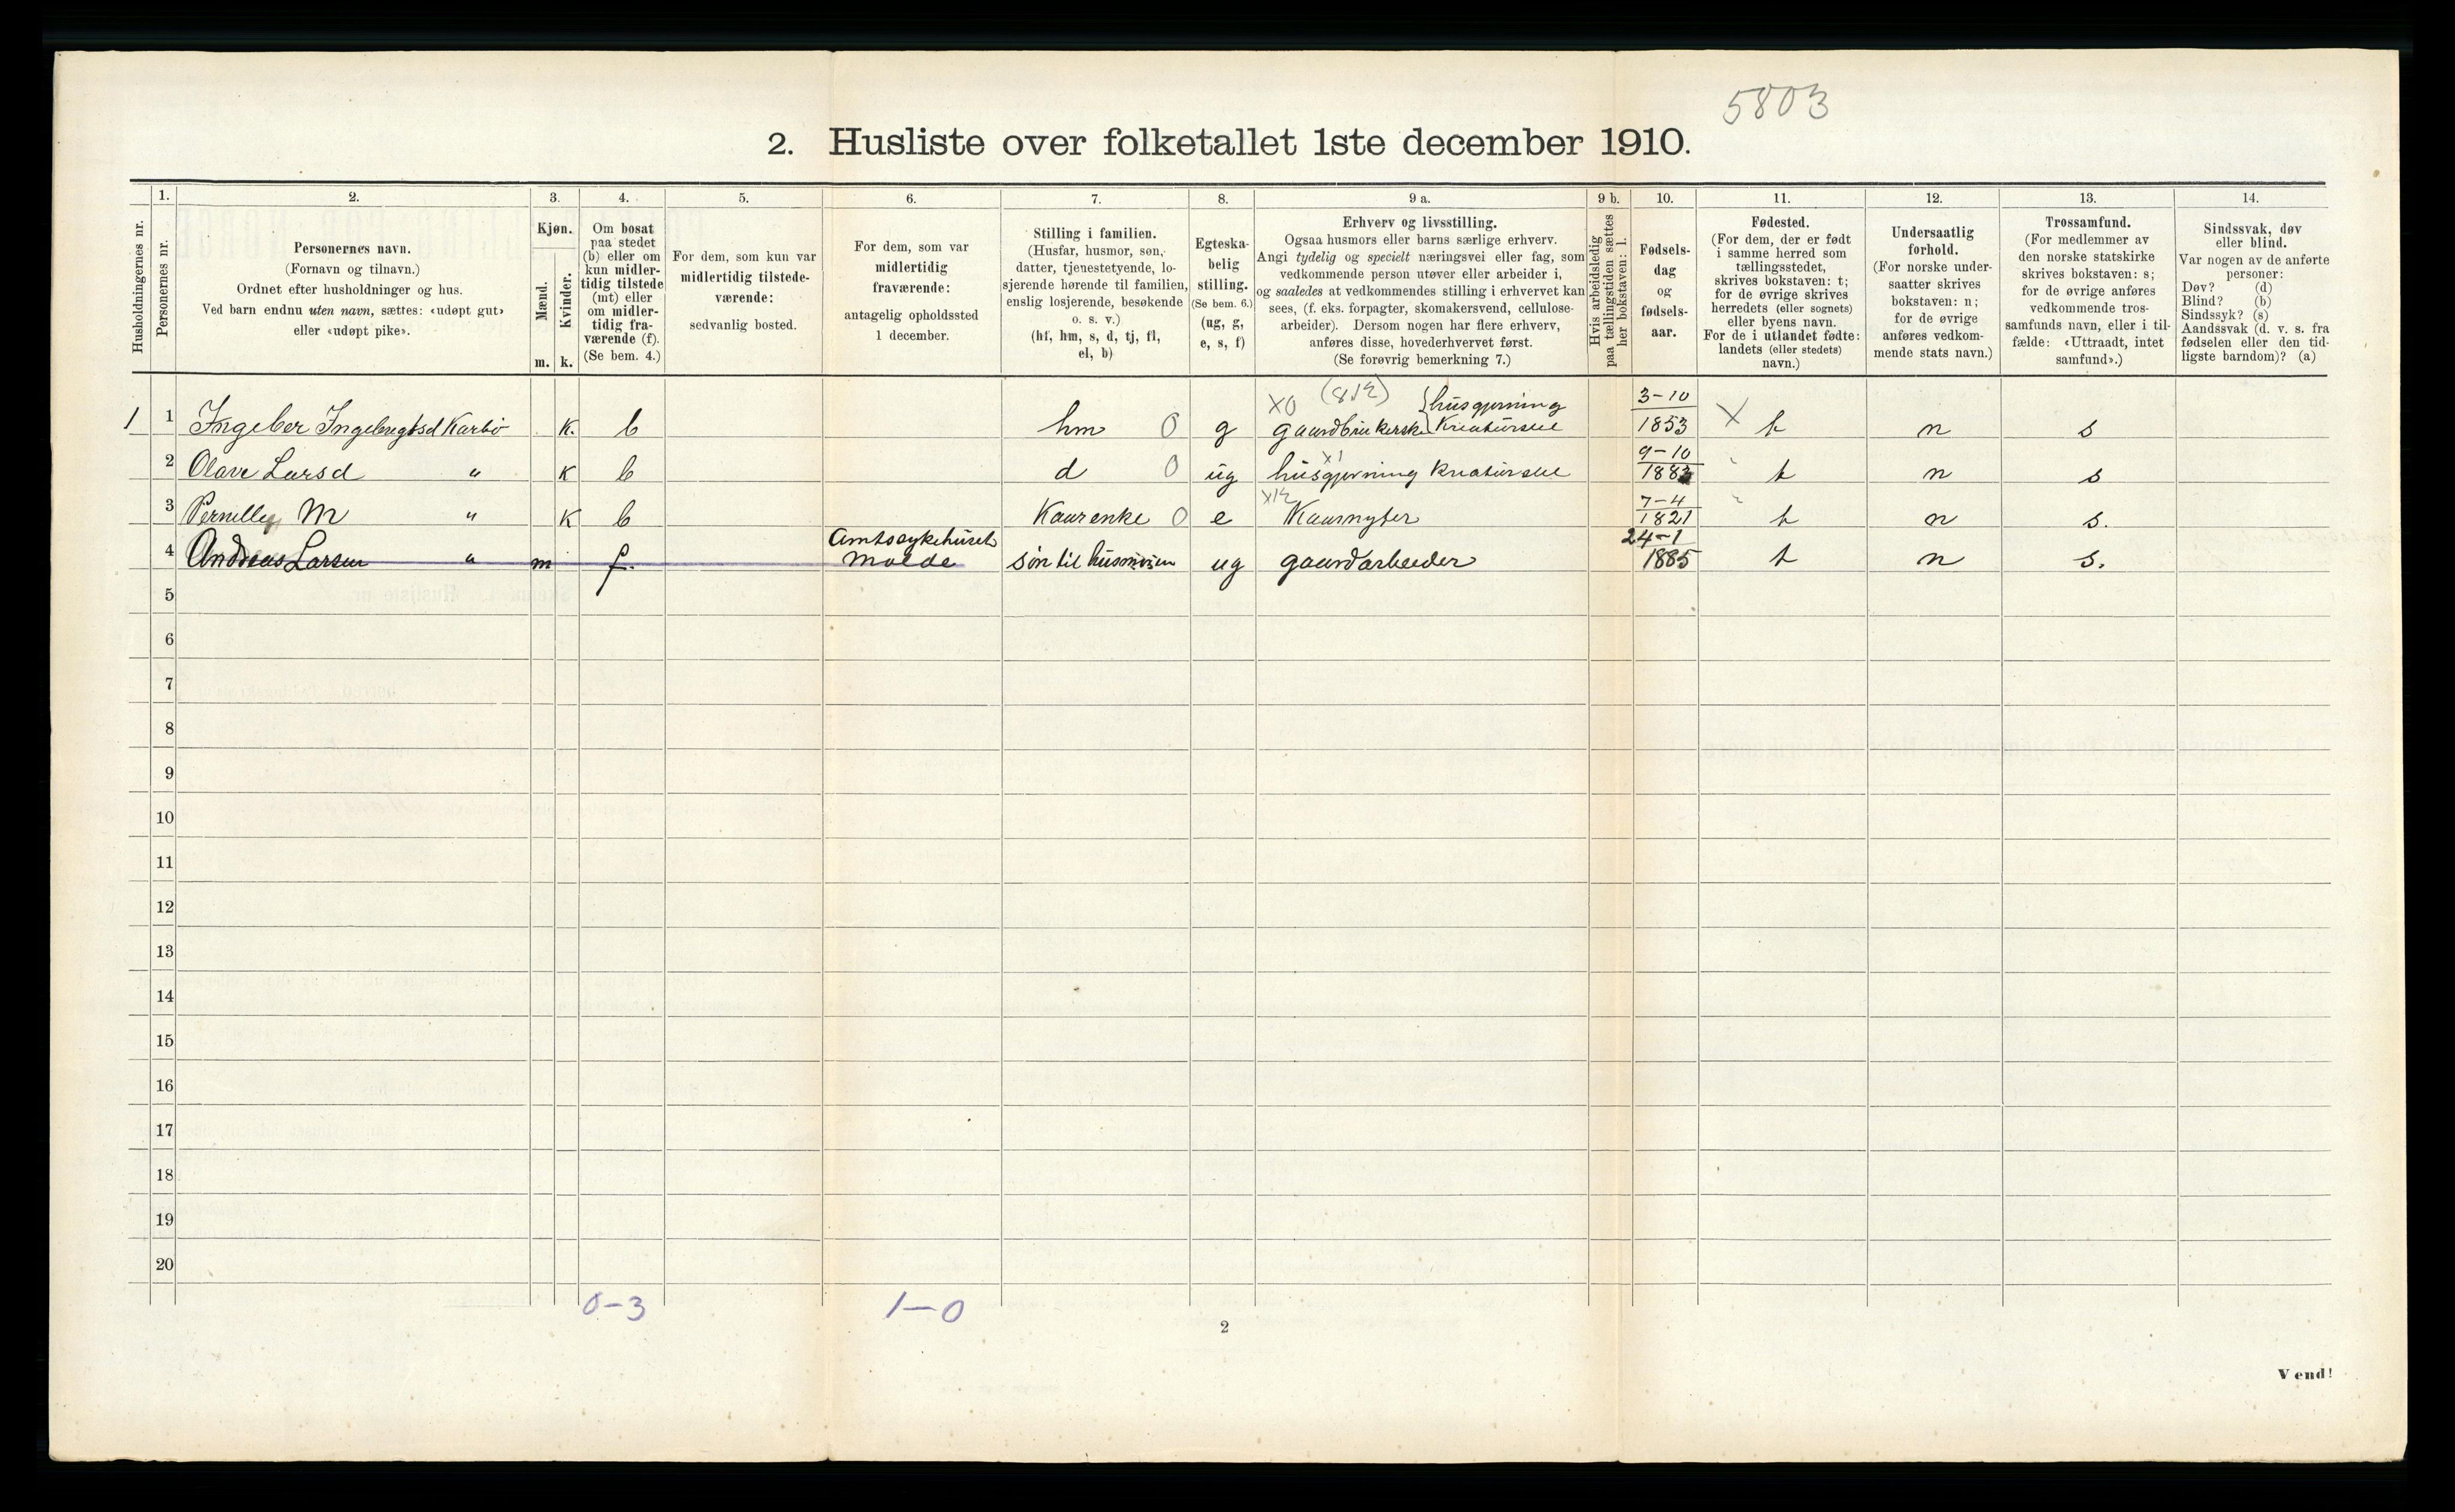 5803
2. Husliste over folketallet 1ste december 1910.
Husholdningernes nr.
1.
Personernes nr.
2.
Personernes navn.
(Fornavn og tilnavn.)
Ordnet efter husholdninger og hus.
Ved barn endnu uten navn, sættes: «udøpt gut»
eller «udøpt pike».
3.
Kjøn.
Mænd.
Kvinder.
m. k.
4.
Om bosat
paa stedet
(b) eller om
kun midler-
tidig tilstede
(mt) eller
om midler-
tidig fra-
værende (f).
(Se bem. 4.)
5.
For dem, som kun var
midlertidig tilstede-
værende:
sedvanlig bosted.
6.
For dem, som var
midlertidig
fraværende:
antagelig opholdssted
1 december.
7.
Stilling i familien.
(Husfar, husmor, søn,
datter, tjenestetyende, lo-
sjerende hørende til familien,
enslig losjerende, besøkende
o. s. v.)
(hf, hm, s, d, tj, fl,
el, b)
8.
Egteska-
belig
stilling.
(Se bem. 6.)
(ug, g,
e, s, f)
9 a.
Erhverv og livsstilling.
Ogsaa husmors eller barns særlige erhverv.
Angi tydelig og specielt næringsvei eller fag, som
vedkommende person utøver eller arbeider i,
og saaledes at vedkommendes stilling i erhvervet kan
sees, (f. eks. forpagter, skomakersvend, cellulose-
arbeider). Dersom nogen har flere erhverv,
anføres disse, hovederhvervet først.
(Se forøvrig bemerkning 7.)
9 b.
Hvis arbeidsledig
paa tællingstiden sættes
her bokstaven: l.
10.
Fødsels-
dag
og
fødsels-
aar.
11.
Fødested.
(For dem, der er født
i samme herred som
tællingsstedet,
skrives bokstaven: t;
for de øvrige skrives
herredets (eller sognets)
eller byens navn.
For de i utlandet fødte:
landets (eller stedets)
navn.)
12.
Undersaatlig
forhold.
(For norske under-
saatter skrives
bokstaven: n;
for de øvrige
anføres vedkom-
mende stats navn.)
13.
Trossamfund.
(For medlemmer av
den norske statskirke
skrives bokstaven: s;
for de øvrige anføres
vedkommende tros-
samfunds navn, eller i til-
fælde: «Uttraadt, intet
samfund».)
14.
Sindssvak, døv
eller blind.
Var nogen av de anførte
personer:
Døv? (d)
Blind? (b)
Sindssyk? (s)
Aandssvak (d. v. s. fra
fødselen eller den tid-
ligste barndom)? (a)
X0 (812) husgjerning 3-10
1 1 Ingeber Ingebregtsd Karbø k. b hm 0 g gaardbrukerske Kreaturstel 1853 X t n s
X1 9-10
2 Olave Larsd " k b d 0 ug husgjerning Kreaturstel 1883 t n s
X12 7-4
3 Pernille M " k b Kaarenke 0 e Kaarnyter 1821 t n s.
Amtssykehuset 24-1
4 Andreas Larsen " m f. Molde søn til husmoren ug gaardarbeider 1885 t n s.
5
6
7
8
9
10
11
12
13
14
15
16
17
18
19
20
0-3 1-0
2
Vend!